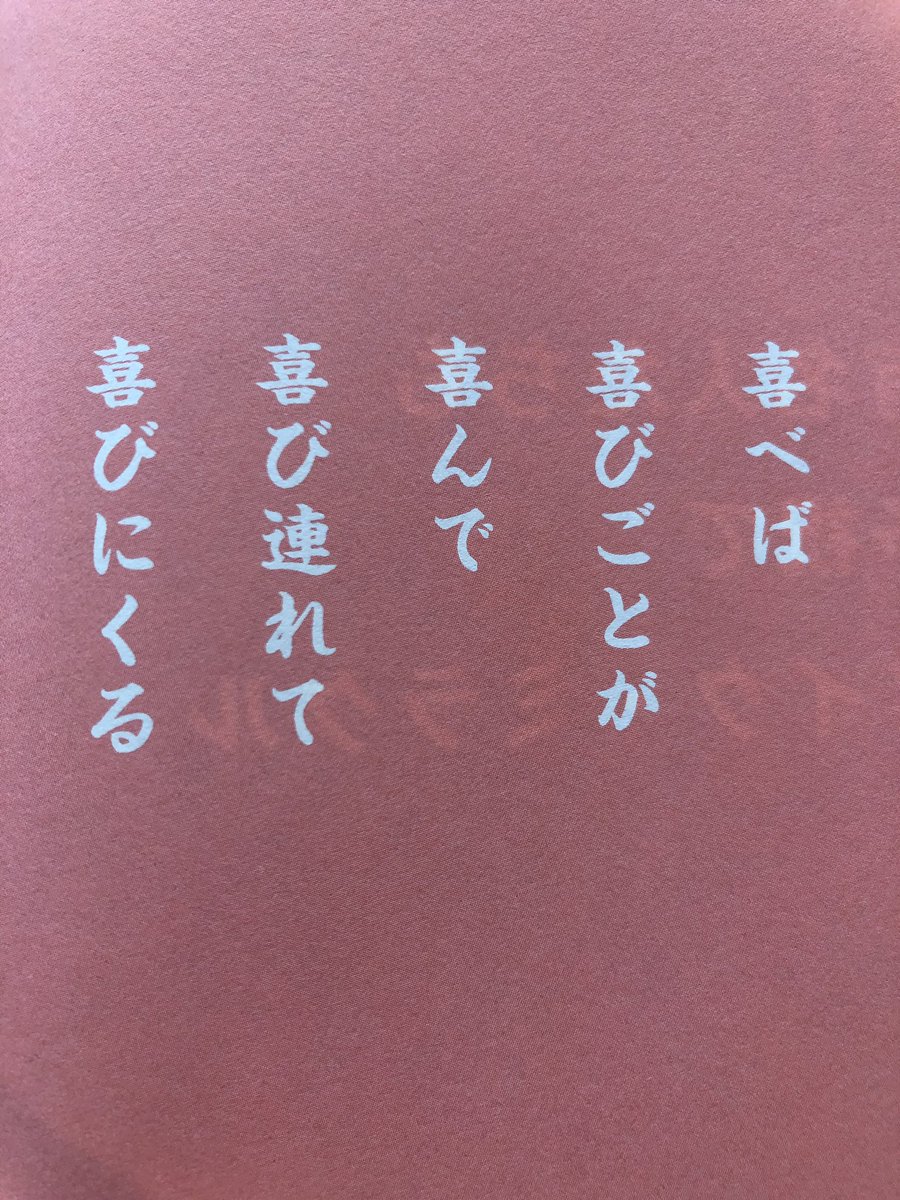 喜べば
喜びごとが
喜んで
喜び連れて
喜びにくる